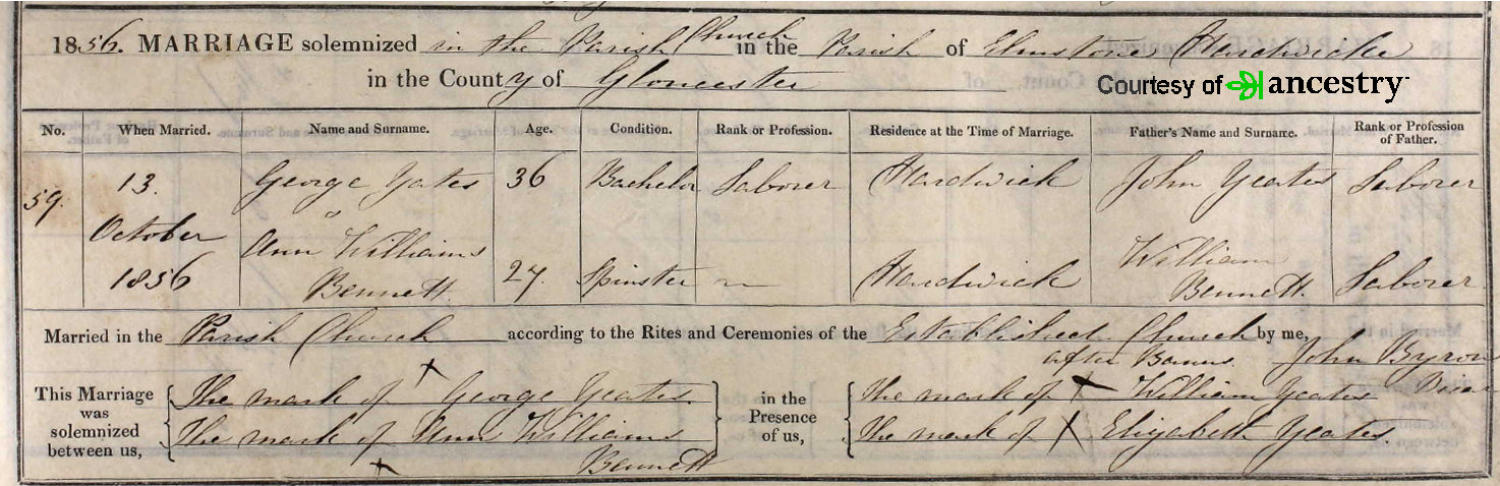 1856. MARRIAGE solemnized in the Parish Church in the Parish of Elmstone Hardwicke
in the County of Gloucester
Courtesy of ancestry
No. When Married. Name and Surname. Age. Condition. Rank or Profession. Residence at the Time of Marriage. Father's Name and Surname. Rank or Profession of Father.
59. 13. George Yates 36 Bachelor Laborer Hardwick John Yeates Laborer
October Ann Williams William
1856 Bennett. 27. Spinster Hardwick Bennett. Laborer
Married in the Parish Church according to the Rites and Ceremonies of the Established Church by me,
after Banns John Byron
This Marriage was solemnized between us, The mark of X George Yeates. in the Presence of us, The mark of X William Yeates
The mark of Ann Williams The mark of X Elizabeth Yeates.
X Bennett